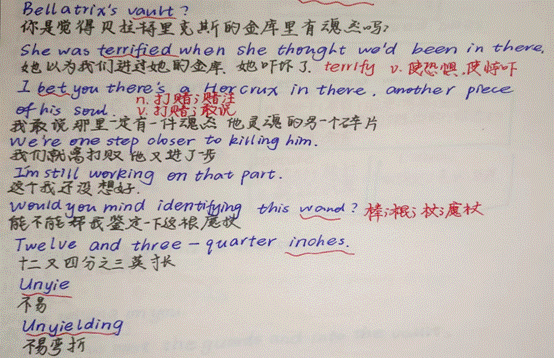 Bellatrix's vault?
你是觉得贝拉特里克斯的金库里有魂器吗?
She was terrified when she thought we'd been in there,
她以为我们进过她的金库.她吓坏了 terrify v.使恐惧,使惊吓
I bet you there's a Horcrux in there, another piece
n.打赌;赌注
of his soul. v.打赌;敢说
我敢说那里一定有一件魂器 他灵魂的另一个碎片
We're one step closer to killing him.
我们就离打败他又进了一步
I'm still working on that part.
这个我还没想好.
Would you mind identifying this wand? 棒;棍;杖;魔杖
能不能帮我鉴定一下这根魔杖
Twelve and three-quarter inches.
十二又四分之三英寸长
Unyie
不易
Unyielding
不易弯折